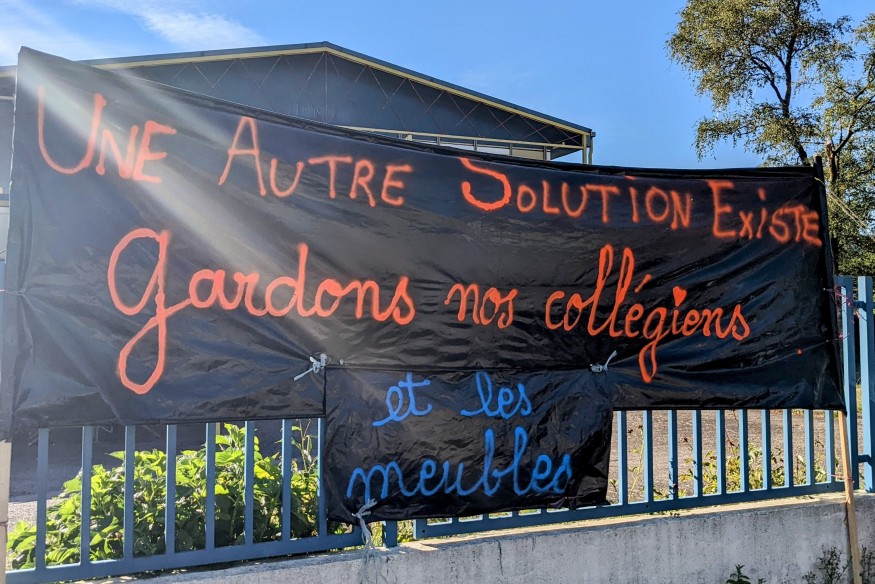 UNE AUTRE SOLUTION EXISTE
Gardons nos collégiens
et les
meubles